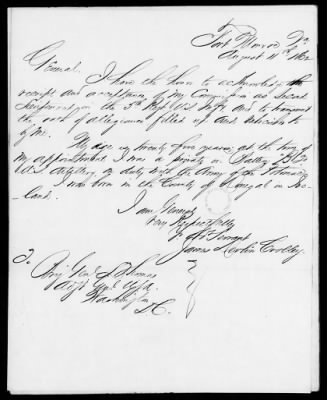 Fort Monroe Va.
August 11th 1862
General.
I have the honor to acknowledge the
receipt and acceptance of my Commission as Second
Lieutenant in the 5th Regt U.S. and to transmit
the oath of allegiance filled up and subscribed to
by me.
My age is twenty five years; at the time of
my appointment I was a private in Battery
U.S. Artillery, on duty with the Army of the Potomac
I was born in the County of Donegal in Ire-
land.
I am General,
Very Respectfully
Yr Obt Servant
James
To
Brig Genl L Thomas
Adjt Genl USA.
Washington
D.C.